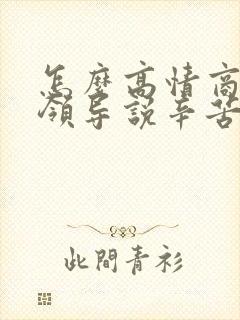 怎麼高情商
領导説辛苦
此間青衫